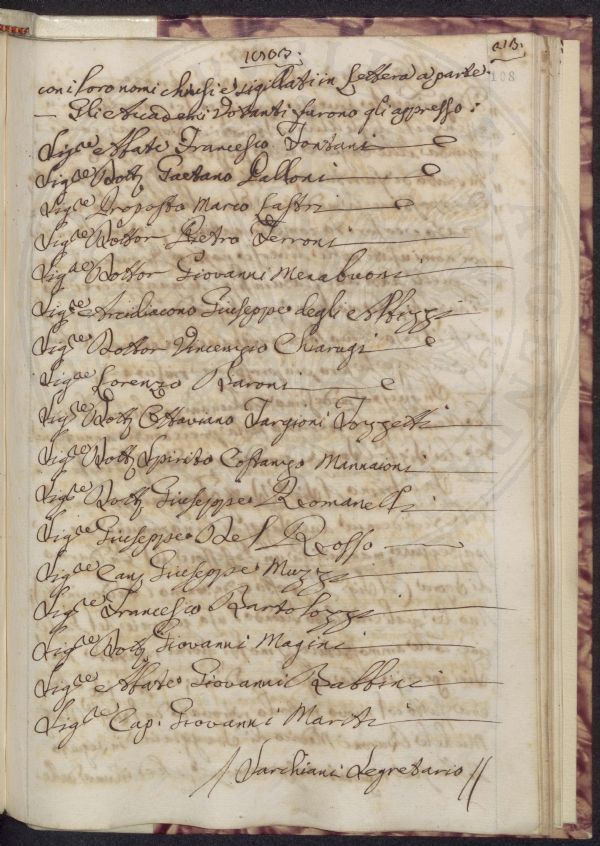 213.
108
con i loro nomi chiusi e sigillati in Lettera a parte.
— Gli Accademi Votanti furono gli appresso:
Sigre Abate Francesco Fontani
Sigre Dottr Gaetano Palloni
Sigre Proposto Marco Lastri
Sigre Dottor Pietro Ferroni
Sigre Dottor Giovanni Menabuoni
Sigre Arcidiacono Giuseppe degli Albizzi
Sigre Dottor Vincenzio Chiarugi
Sigre Lorenzo Baroni
Sigre Dottr Ottaviano Targioni Tozzetti
Sigre Dottr Spirito Costanzo Mannaioni
Sigre Dottr Giuseppe Romanelli
Sigre Giuseppe Del Rosso
Sigre Can. Giuseppe Muzzi
Sigre Francesco Bartolozzi
Sigre Dottr Giovanni Magini
Sigre Abate Giovanni Babbini
Sigre Cap. Giovanni Mariti
Sarchiani Segretario